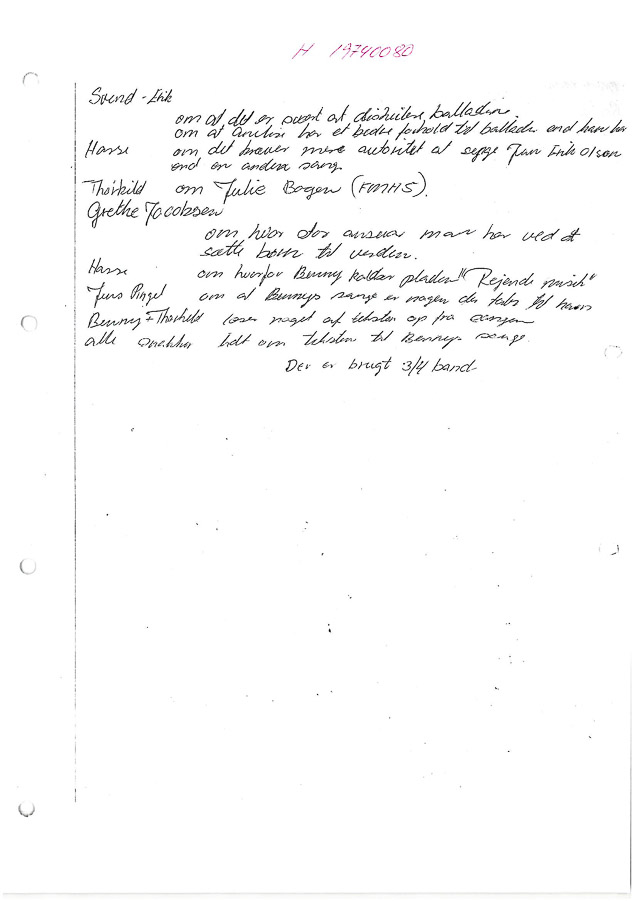 H 19740080
Svend-Erik
om at det er svært at diskutere balladen
om at har et bedre forhold til ballader end han har
Hasse om det kræver mere autoritet at synge Finn Erik Olsen
end en anden sang.
Thorkild om Julie Bogen (FMHS).
Grethe Jacobsen
om hvor stor ansvar man har ved at
sætte børn til verden.
Hasse om hvorfor Benny kalder pladen "Rejende musik"
Jens Pingel om at Bennys sange er nogen der
Benny + Thorkild læser noget af teksten op fra sangen
alle snakker lidt om teksten til Bennys sange.
Der er brugt 3/4 bånd